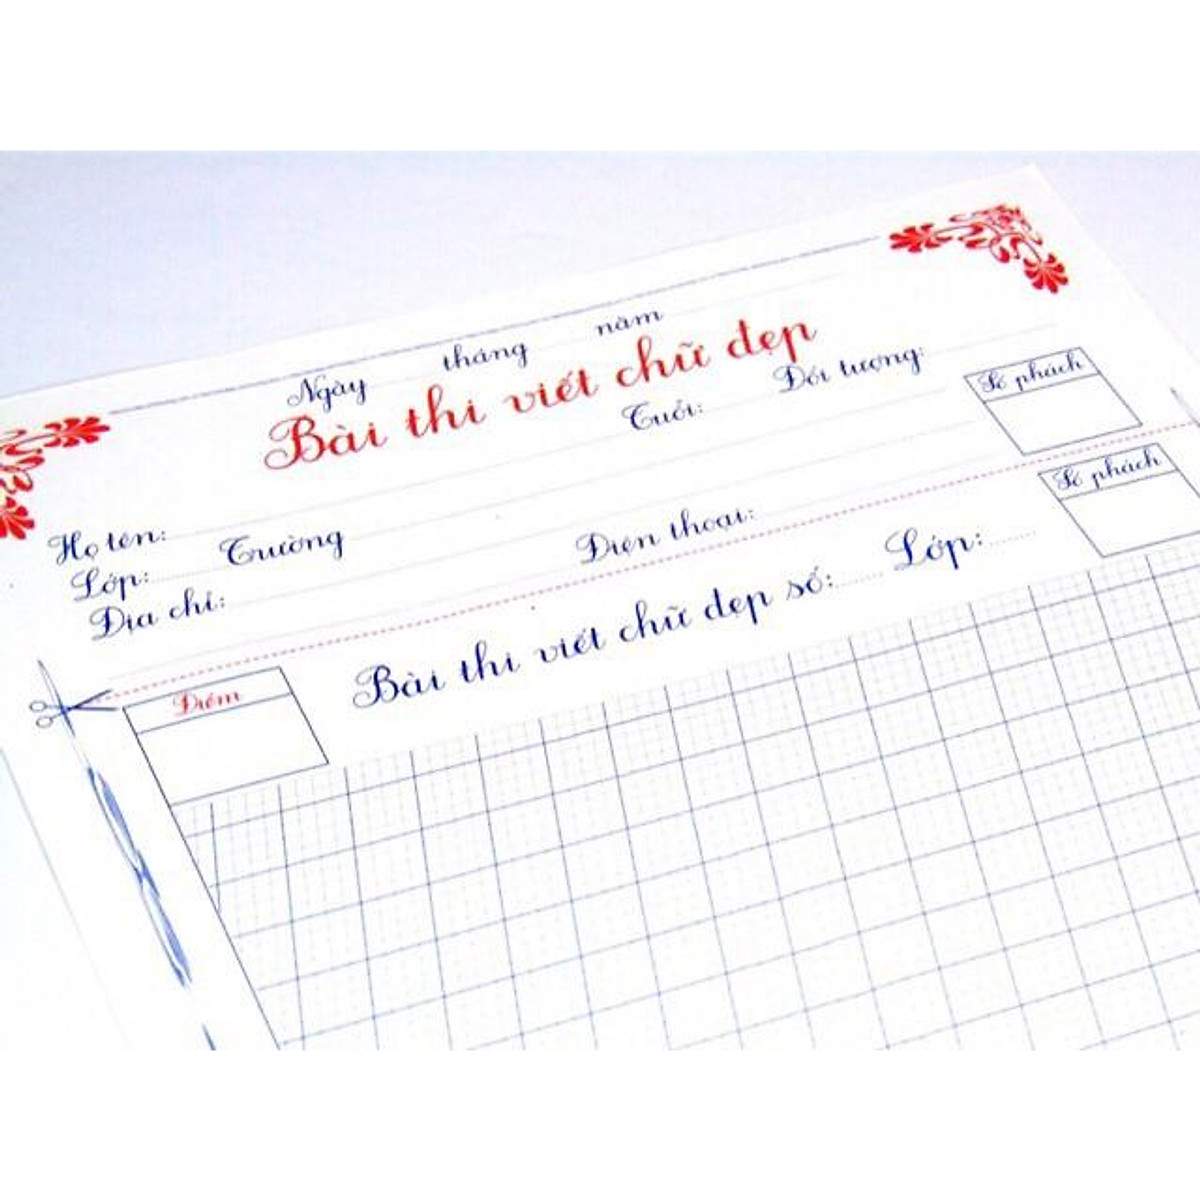 Ngày tháng năm
Bài thi viết chữ đẹp
Họ tên: Tuổi: Đối tượng:
Lớp: Trường
Địa chỉ: Điện thoại:
Số phách
Số phách
Điểm
Bài thi viết chữ đẹp số:........ Lớp:........